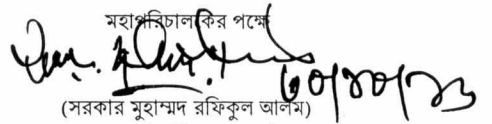 মহাপরিচালকের পক্ষে
৩০/১০/২৩
(সরকার মুহাম্মদ রফিকুল আলম)